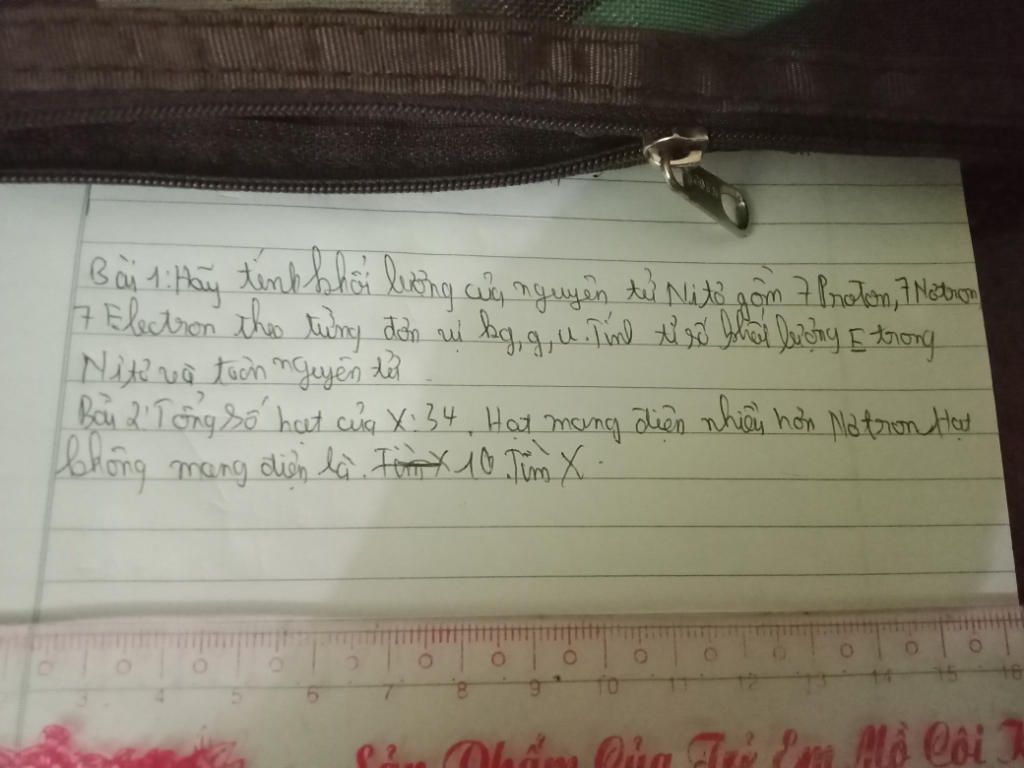 Bài 1: Hãy tính khối lượng của nguyên tử Nitơ gồm 7 Proton, 7 Nơtron
7 Electron theo từng đơn vị kg, g, u. Tính tỉ số khối lượng E trong
Nitơ và toàn nguyên tử.
Bài 2: Tổng số hạt của X: 34. Hạt mang điện nhiều hơn Nơtron Hạt
không mang điện là. Tìm X 10. Tìm X.
3 4 5 6 7 8 9 10 11 12 13 14 15 16
Sản Phẩm Của Trẻ Em Mồ Côi